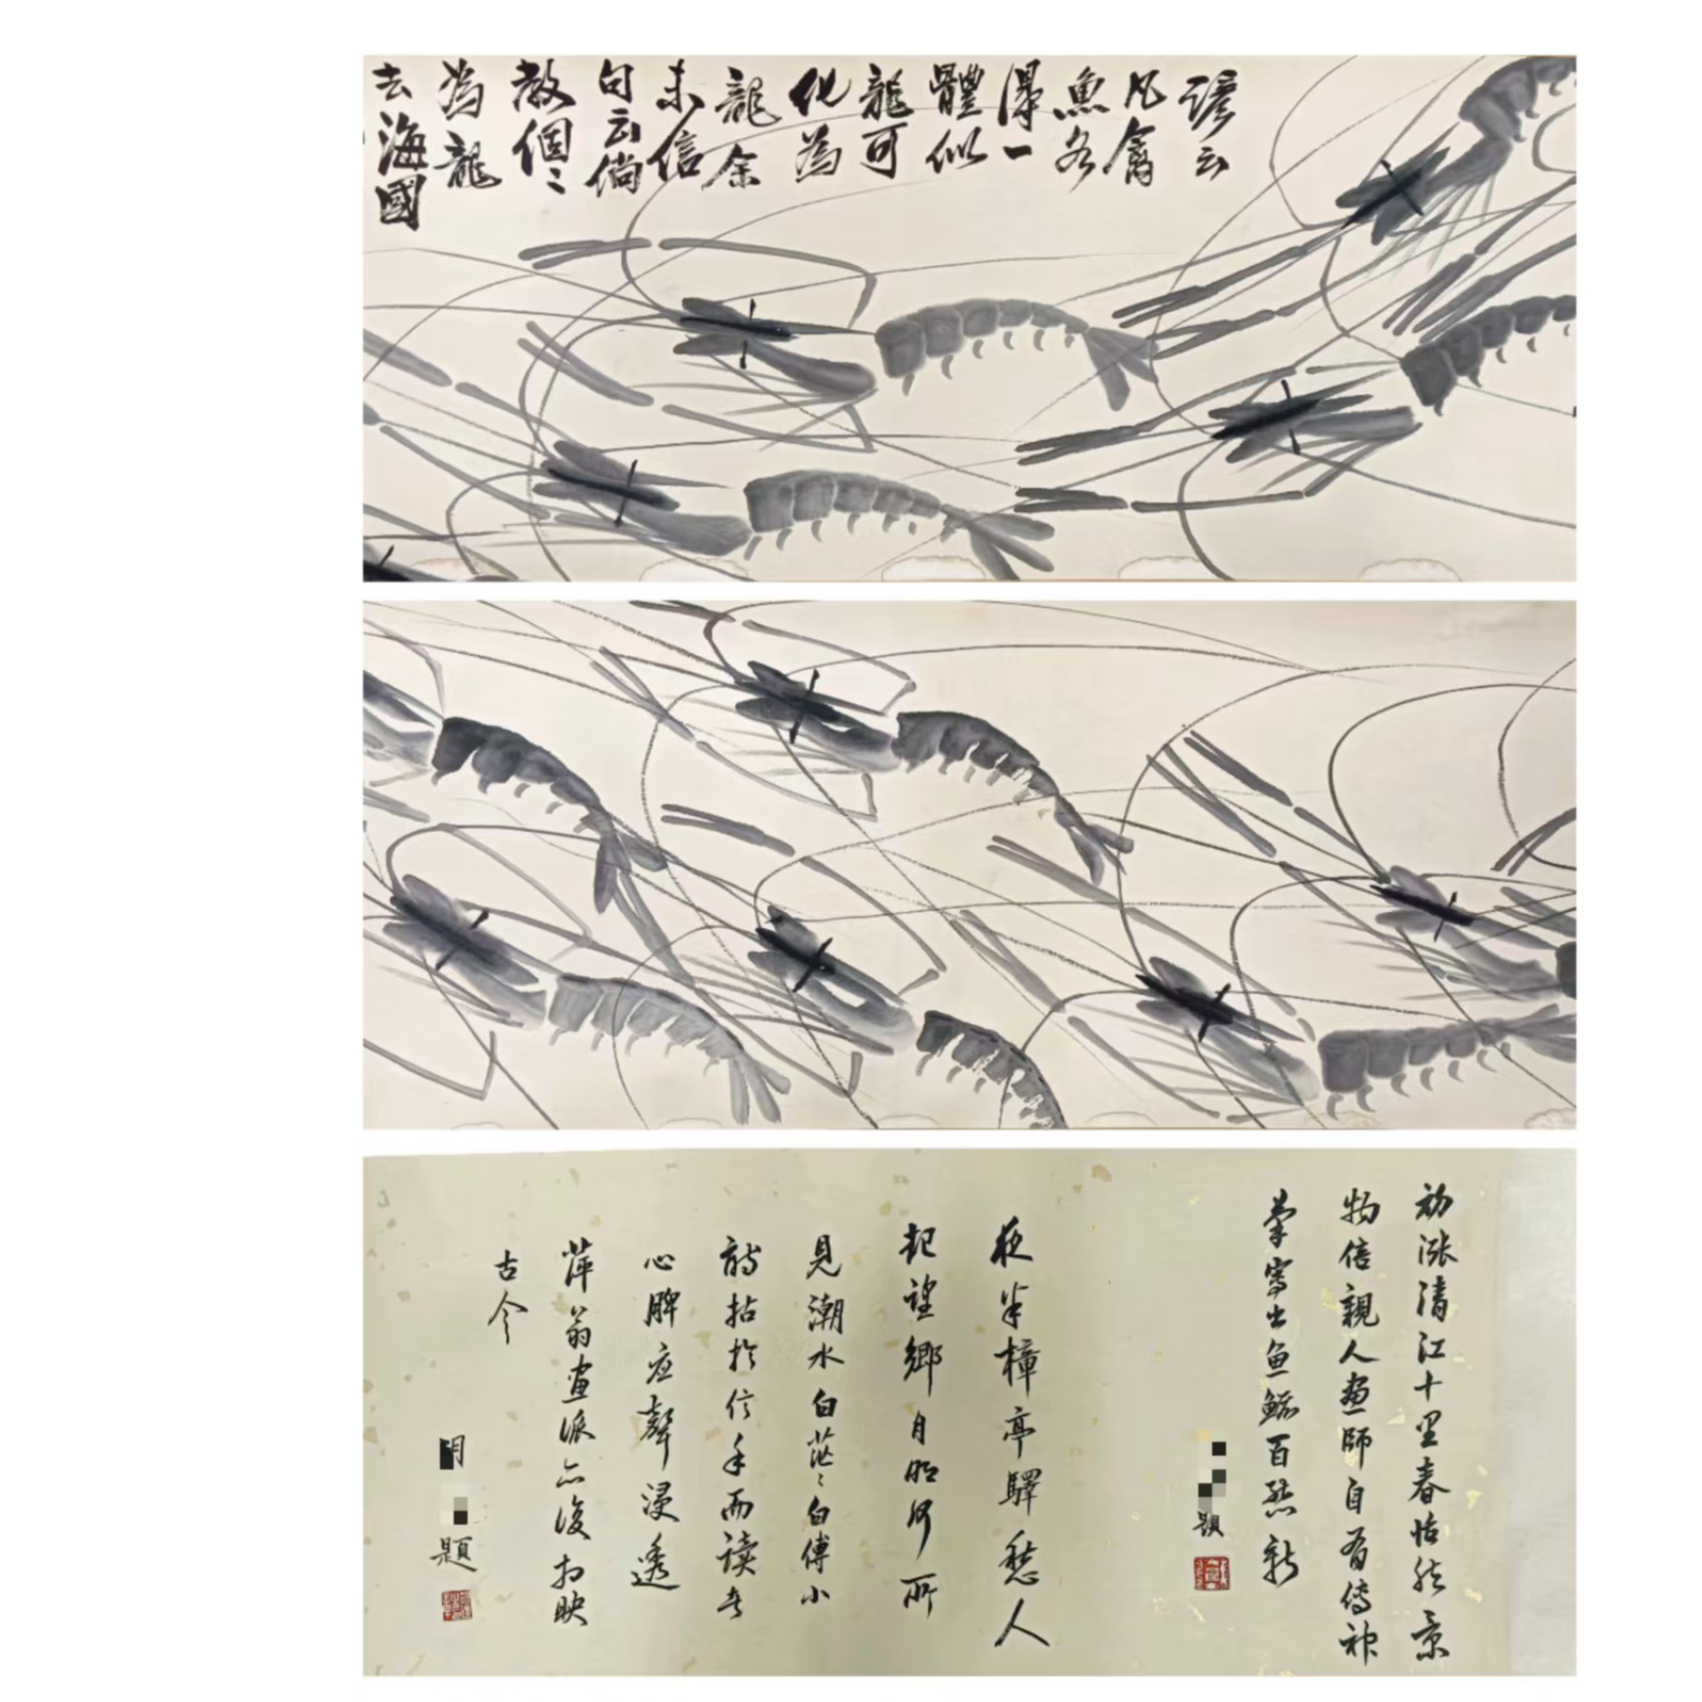 諺云
凡禽
魚各
得一
體似
龍可
化為
龍余
未信
句云倘
教個〻
為龍
去海國
初漲清江十里春怡然景
物倍親人畫師自有傳神
筆寫出魚鰕百態新
題
夜半樟亭驛愁人
起望鄉月明何所
見潮水白茫〻白傅小
詩拈於信手而读者
心脾应聲浸透
萍翁畫派亦後相映
古今
月
題